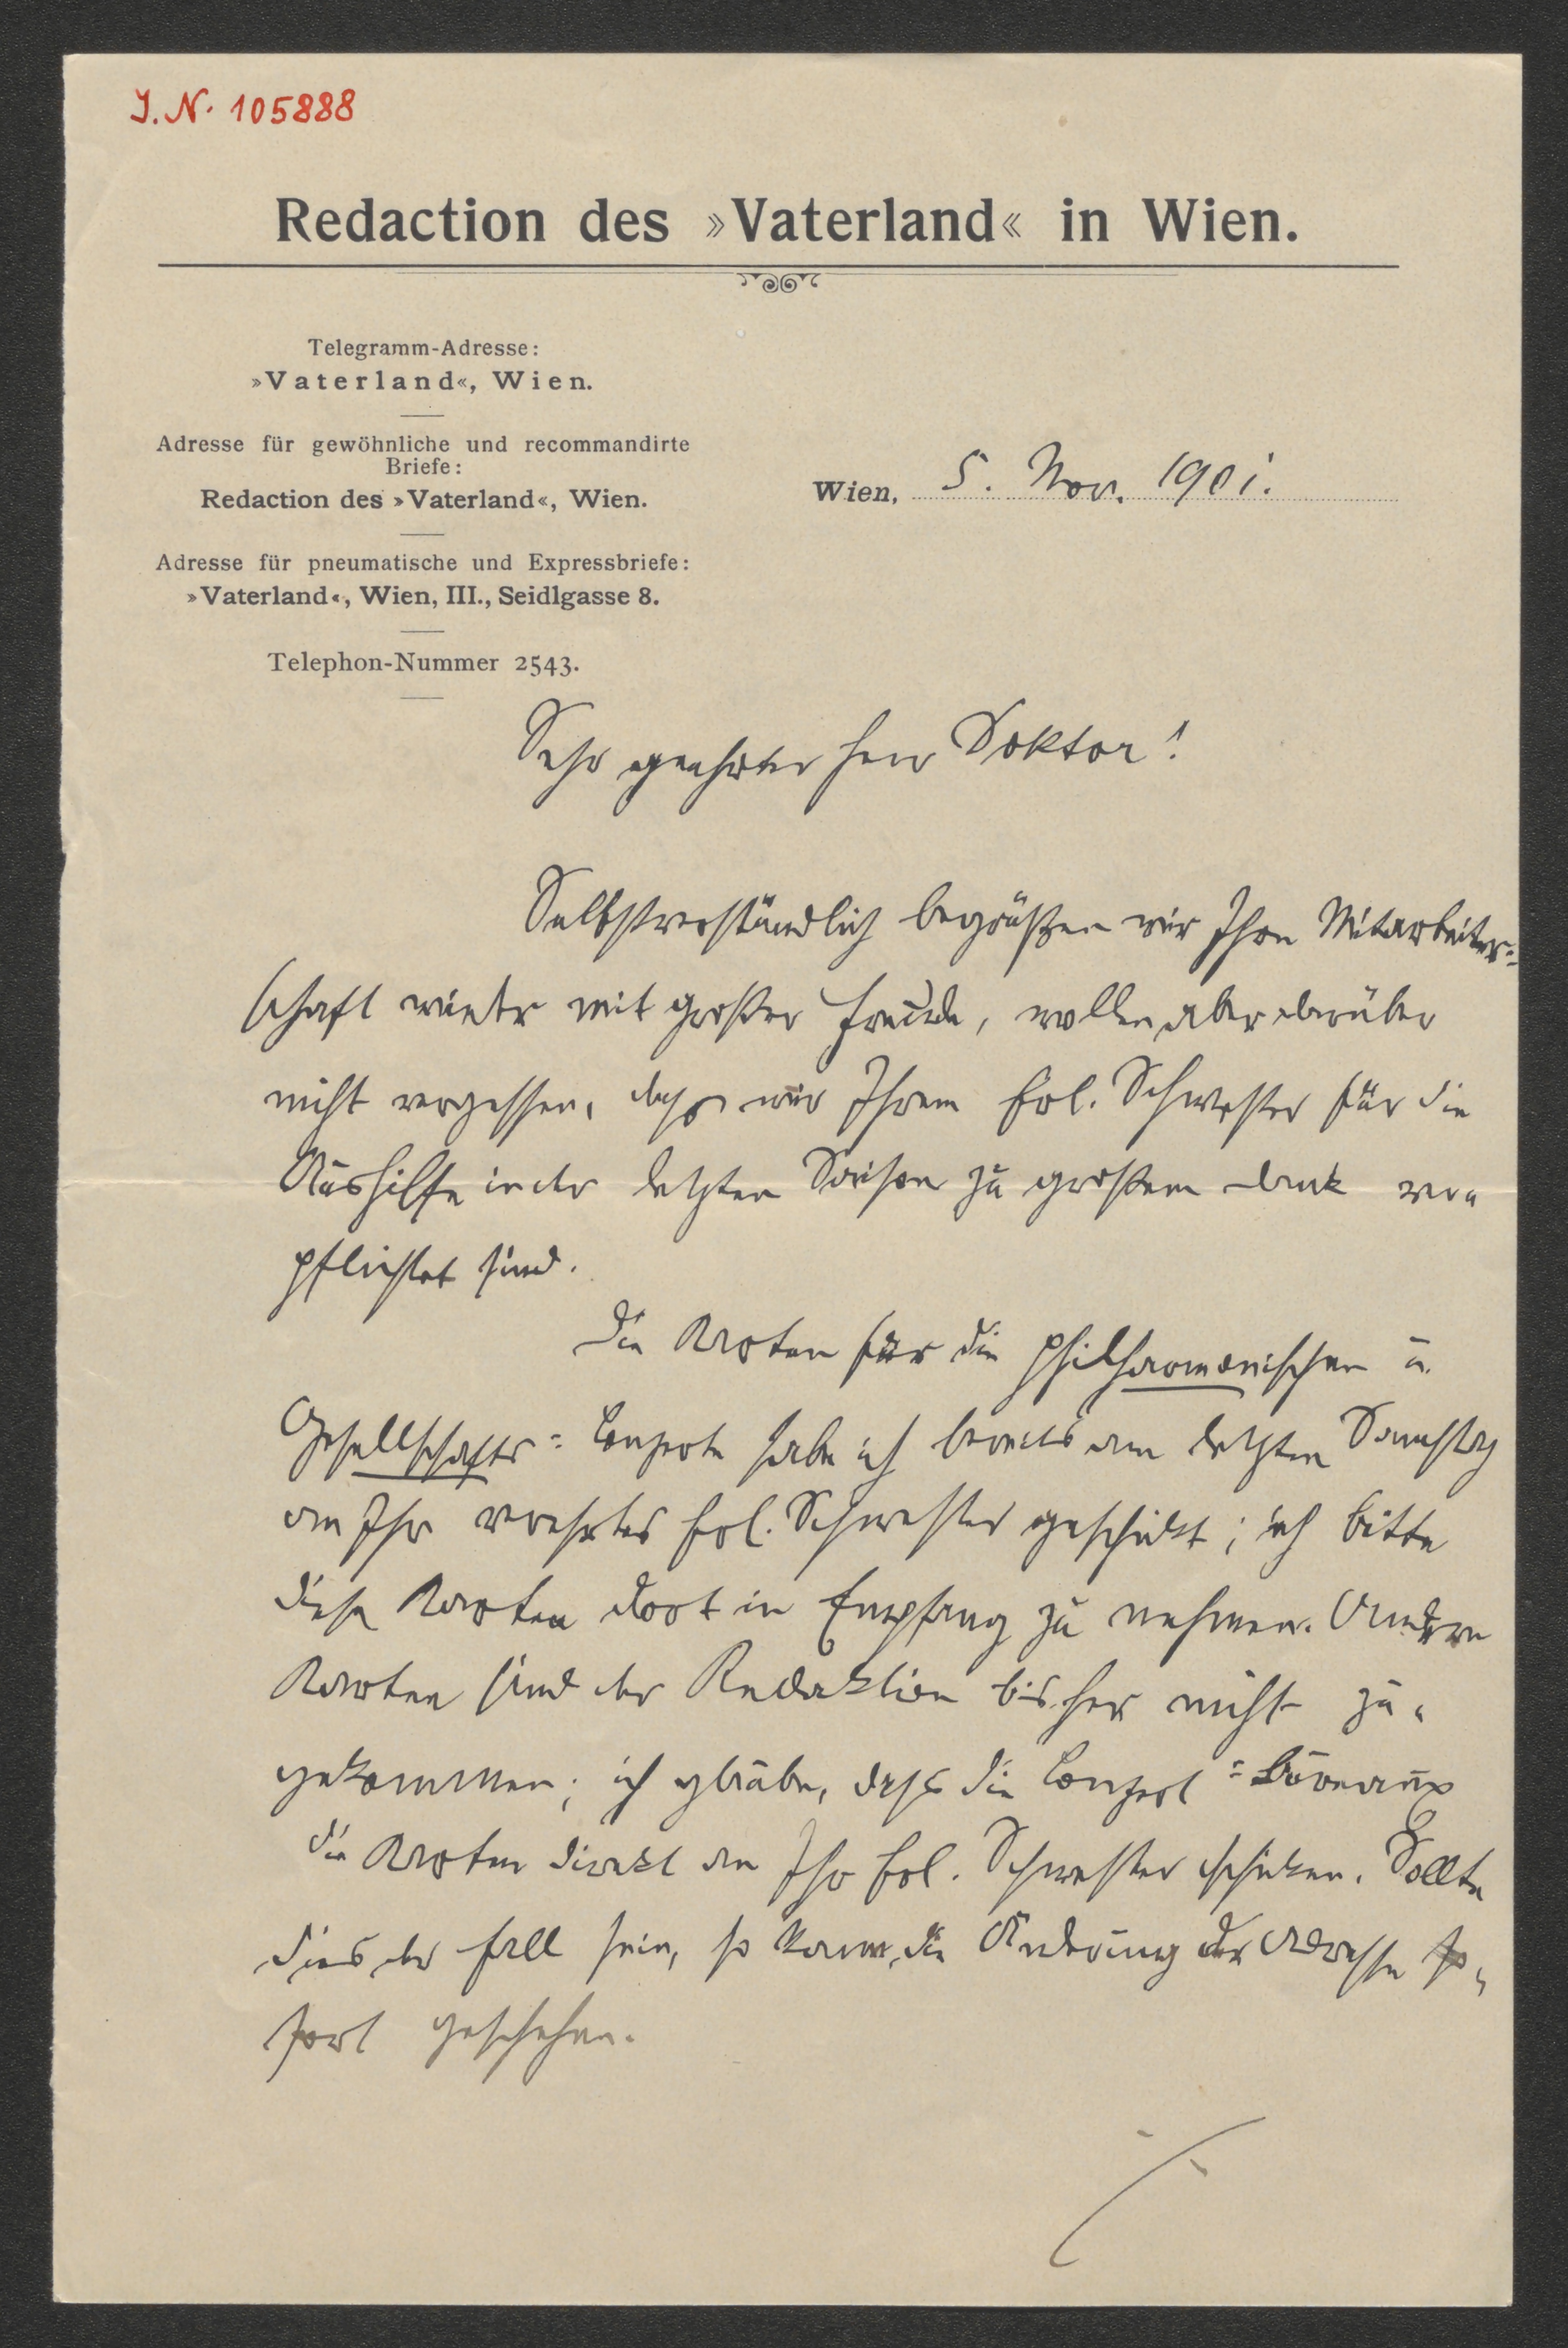 J.N. 105888
Redaction des »Vaterland« in Wien.
Telegramm-Adresse:
»Vaterland«, Wien.
Adresse für gewöhnliche und recommandirte
Briefe:
Redaction des »Vaterland«, Wien.
Adresse für pneumatische und Expressbriefe:
»Vaterland«, Wien, III., Seidlgasse 8.
Telephon-Nummer 2543.
Wien, 5. Nov. 1901.
Sehr geehrter Herr Doktor!
Selbstverständlich begrüßen wir Ihre Mitarbeiter=
schaft wieder mit großer Freude, wollen aber darüber
nicht vergessen, dass wir Ihrem Frl. Schwester für die
Aushilfe in der letzten Saison zu großem Dank ver=
pflichtet sind.
Die Karten für die philharmonischen u.
Gesellschafts=Conzerte habe ich bereits am letzten Samstag
an Ihr verehrtes Frl. Schwester geschickt; ich bitte
diese Karten dort in Empfang zu nehmen. Andere
Karten sind der Redaktion bisher nicht zu=
gekommen; ich glaube, dass die Conzert=Bureaux
die Karten direkt an Ihr Frl. Schwester schicken. Sollte
dies der Fall sein, so kann die Änderung der Adresse so=
fort geschehen.